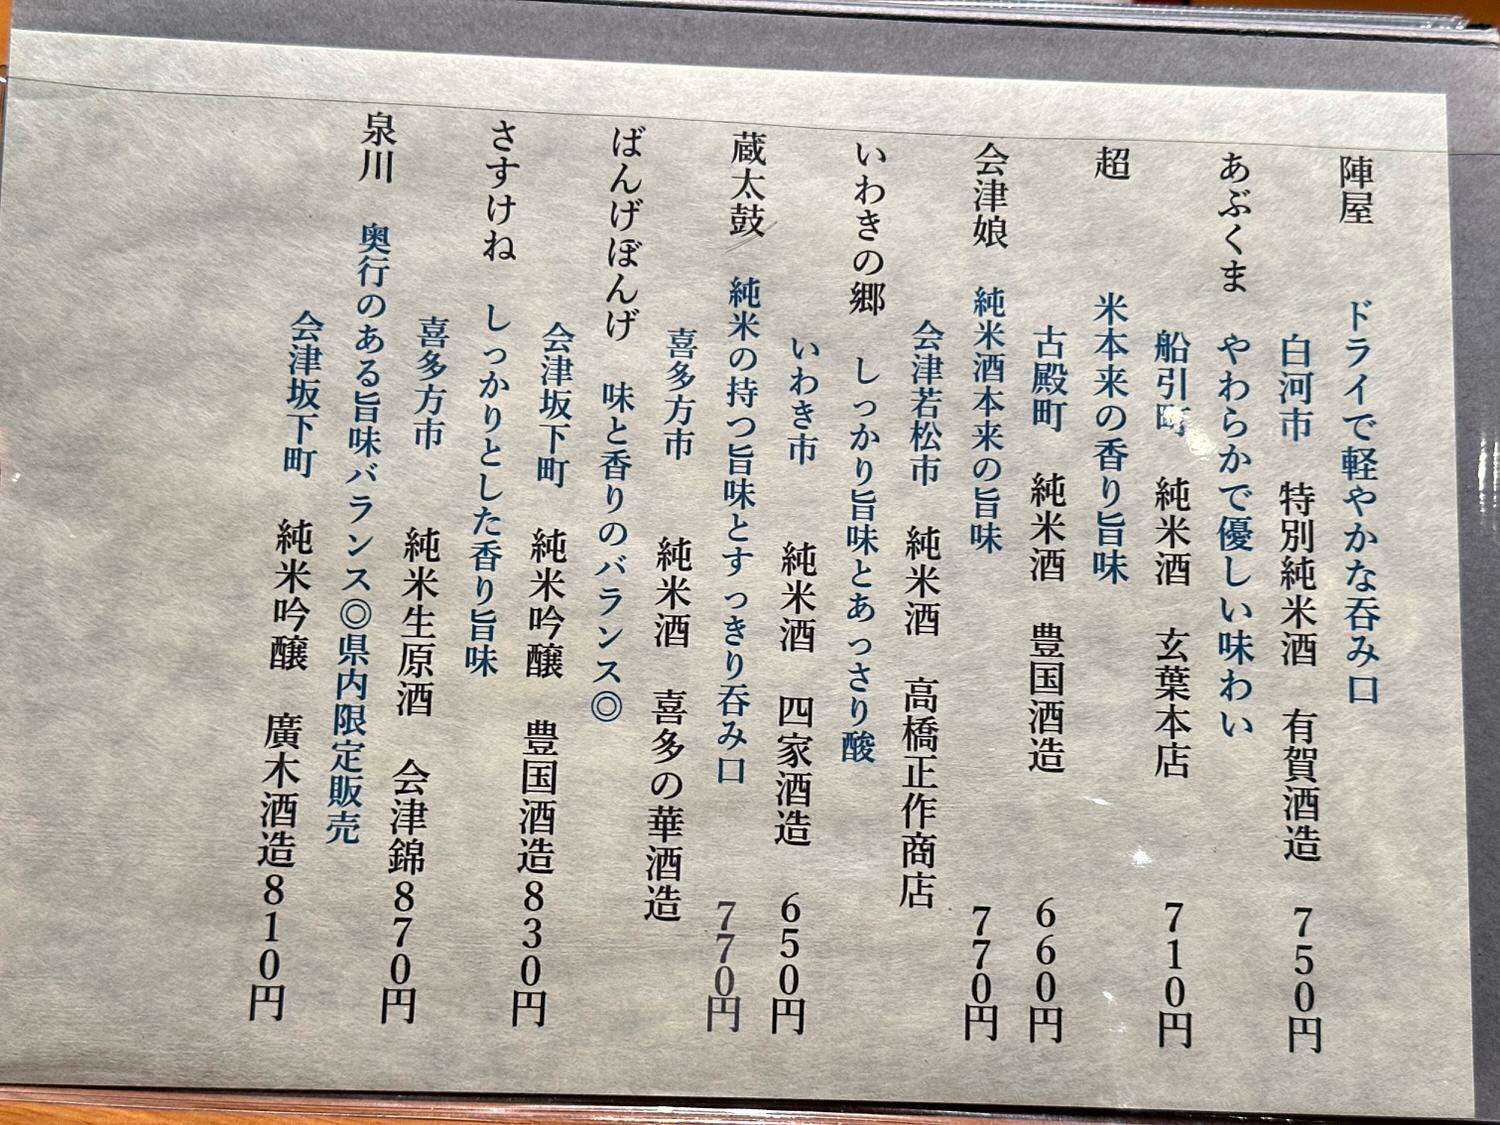 陣屋 ドライで軽やかな呑み口
白河市 特別純米酒 有賀酒造 750円
あぶくま やわらかで優しい味わい
船引町 純米酒 玄葉本店 710円
超 米本来の香り旨味
古殿町 純米酒 豊国酒造 660円
会津娘 純米酒本来の旨味 770円
会津若松市 純米酒 高橋正作商店
いわきの郷 しっかり旨味とあっさり酸
いわき市 純米酒 四家酒造 650円
蔵太鼓 純米の持つ旨味とすっきり呑み口 770円
喜多方市 純米酒 喜多の華酒造
ばんげぼんげ 味と香りのバランス◎
会津坂下町 純米吟醸 豊国酒造830円
さすけね しっかりとした香り旨味
喜多方市 純米生原酒 会津錦870円
泉川 奥行のある旨味バランス◎県内限定販売
会津坂下町 純米吟醸 廣木酒造810円